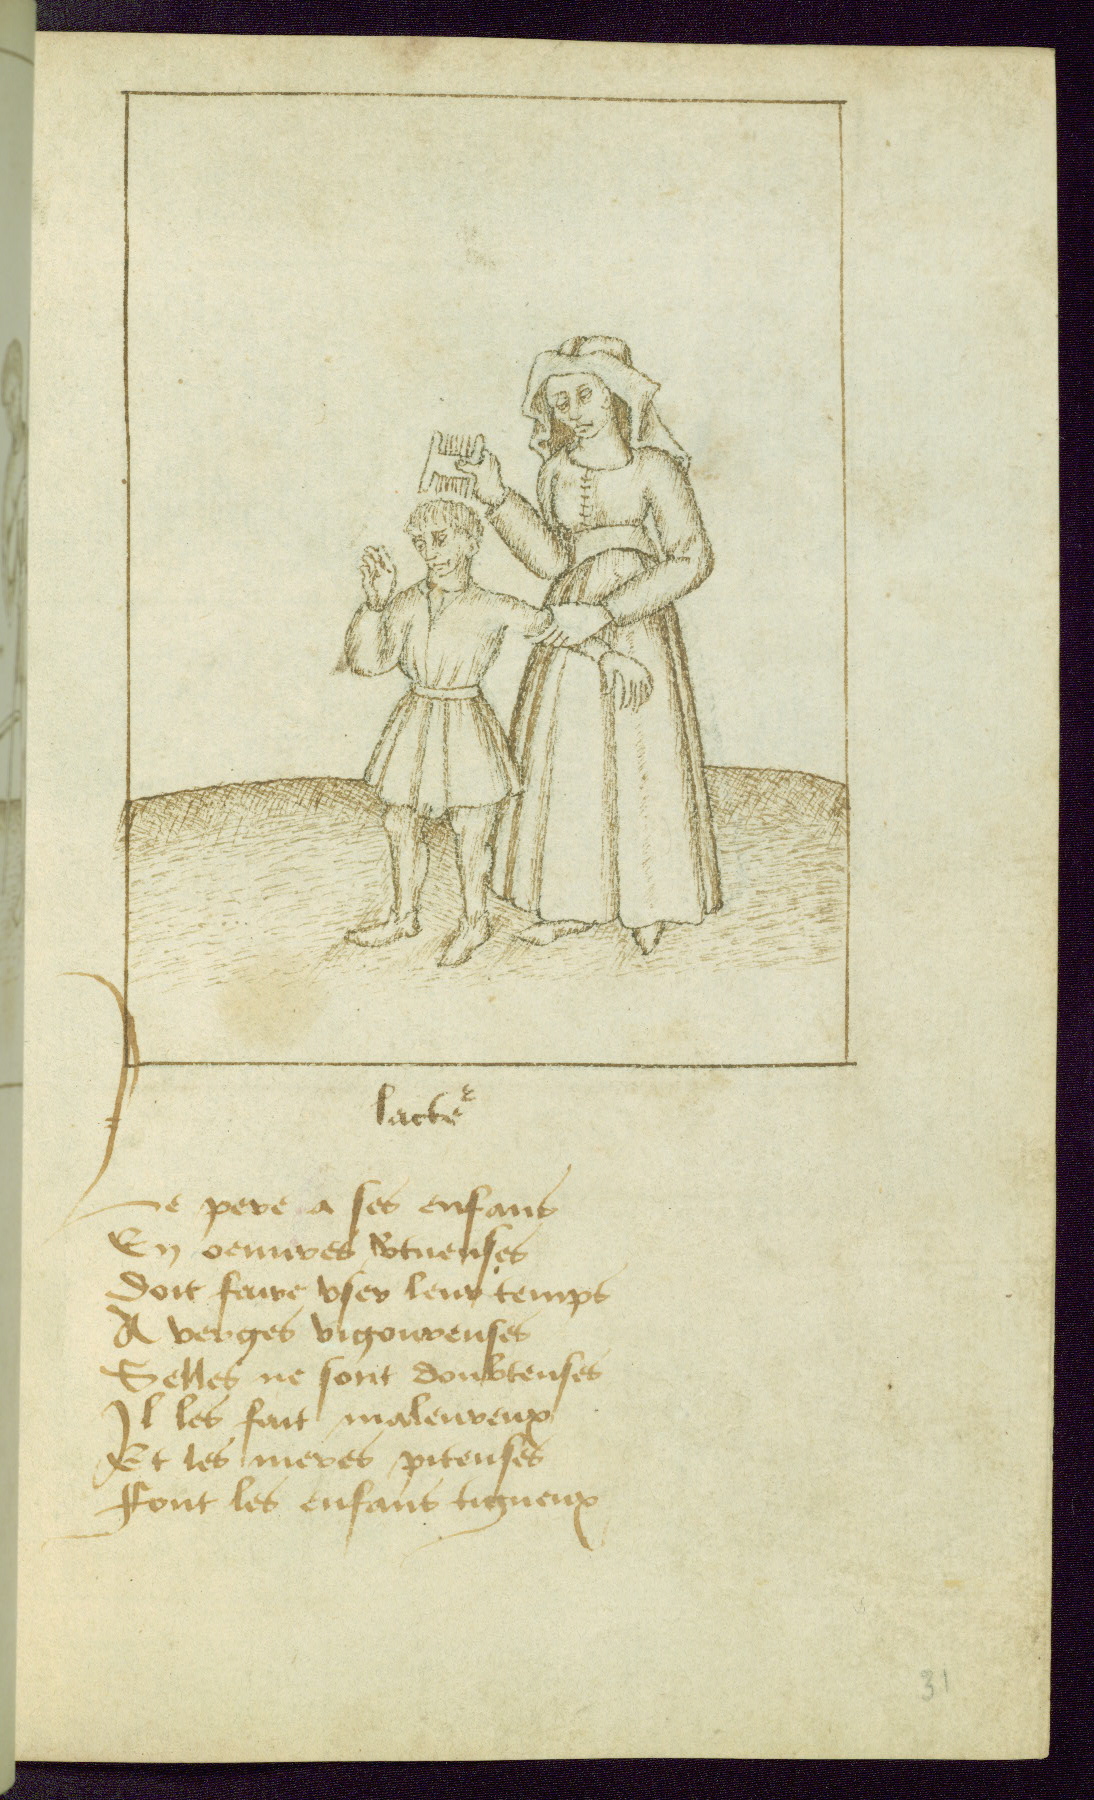 lacter
Le pere a ses enfans
En oeuures vtueuses
Doit faire vser leur temps
A verges vigoureuses
Selles ne sont doubteuses
Il les fait maleureux
Et les meres piteuses
Font les enfans tigneux
31